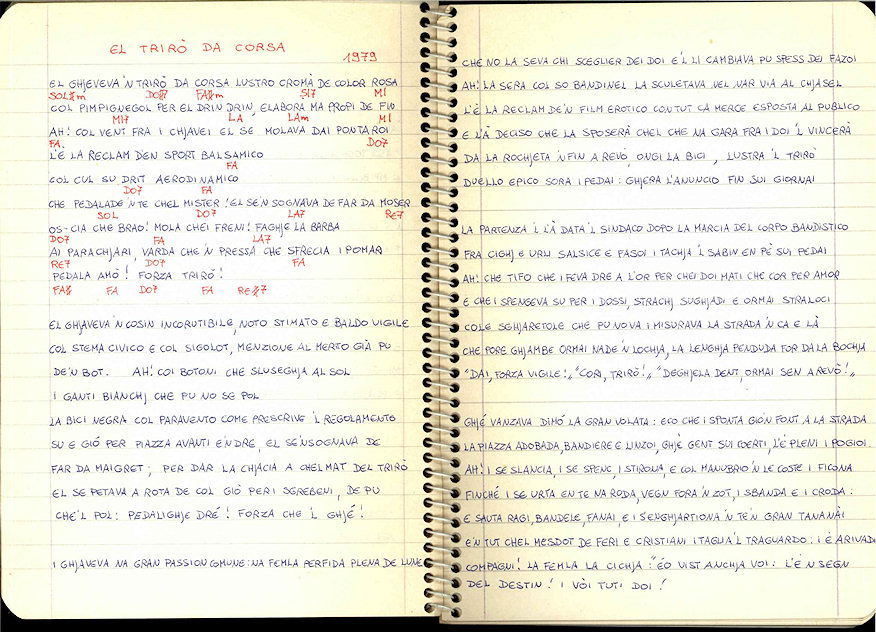 EL TRIRÒ DA CORSA
1979
EL GHJEVEVA 'N TRIRÒ DA CORSA LUSTRO CROMÀ DE COLOR ROSA
SOL♯m DO♯ FA♯m SI7 MI
COL PIMPIGNEGOL PER EL DRIN DRIN, ELABORÀ MA PROPI DE FIN
MI7 LA LAm MI
AH! COL VENT FRA I CHJAVEI EL SE MOLAVA DAI PONTAROI
FA. DO7
L'E LA RECLAM D'EN SPORT BALSAMICO
FA
COL CUL SU DRIT AERODINAMICO
DO7 FA
CHE PEDALADE 'N TE CHEL MISTER! EL SE'N SOGNAVA DE FAR DA MOSER
SOL DO7 LA7 RE7
OS-CIA CHE BRAO! MOLA CHEI FRENI! FAGHJE LA BARBA
DO7 FA LA7
AI PARACHJARI, VARDA CHE 'N PRESSA CHE SFRECIA I POMAR
RE7 DO7 FA
PEDALA AMÒ! FORZA TRIRÒ!
FA♯ FA DO7 FA RE♯7
EL GHJAVEVA 'N COSIN INCORUTIBILE, NOTO STIMATO E BALDO VIGILE
COL STEMA CIVICO E COL SIGOLOT, MENZIONE AL MERTO GIÀ PU
DE'N BOT. AH! COI BOTONI CHE SLUSEGHJA AL SOL
I GANTI BIANCHJ CHE PU NO SE POL
LA BICI NEGRA COL PARAVENTO COME PRESCRIVE 'L REGOLAMENTO
SU E GIÓ PER PIAZZA AVANTI E'NDRE, EL SE'NSOGNAVA DE
FAR DA MAIGRET; PER DAR LA CHJACIA A CHEL MAT DEL TRIRÒ
EL SE PETAVA A ROTA DE COL GIÒ PER I SGREBENI, DE PU
CHE'L POL: PEDALIGHJE DRÉ! FORZA CHE 'L GHJÉ!
I GHJAVEVA NA GRAN PASSION COMUNE: NA FEMLA PERFIDA PLENA DE LUNE
CHE NO LA SEVA CHI SCEGLIER DEI DOI E'L LI CAMBIAVA PU SPESS DEI FAZOI
AH! LA SERA COL SO BANDINEL LA SCULETAVA NEL NAR VIA AL CHJASEL
L'È LA RECLAM DE'N FILM EROTICO CON TUT CA MERCE ESPOSTA AL PUBLICO
E L'À DECISO CHE LA SPOSERÀ CHEL CHE NA GARA FRA I DOI 'L VINCERÀ
DA LA ROCHJETA 'N FIN A REVÒ, ONGI LA BICI, LUSTRA 'L TRIRÒ
DUELLO EPICO SORA I PEDAI: GHJERA L'ANUNCIO FIN SUI GIORNAI
LA PARTENZA L'À DATA 'L SINDACO DOPO LA MARCIA DEL CORPO BANDISTICO
FRA CIGHJ E URLI SALSICE E FASOI I TACHJA 'L SABIN EN PÈ SUI PEDAI
AH! CHE TIFO CHE I FEVA DRE A L'OR PER CHEI DOI MATI CHE COR PER AMOR
E CHE I SPENGEVA SU PER I DOSSI, STRACHJ SUGHJADI E ORMAI STRALOCI
COLE SGHJARETOLE CHE PU NOVA I MISURAVA LA STRADA 'N CA E LÀ
CHE PORE GHJAMBE ORMAI NADE 'N LOCHJA, LA LENGHJA PENDUDA FOR DA LA BOCHJA
"DAI, FORZA VIGILE!" "CORI, TRIRÒ!" "DEGHJELA DENT, ORMAI SEN A REVÒ!"
GHJÉ VANZAVA DIMÓ LA GRAN VOLATA: ECO CHE I SPONTA GIÒ 'N FONT A LA STRADA
LA PIAZZA ADOBADA, BANDIERE E LINZOI, GHJÈ GENT SUI COERTI, L'È PLENI I POGIOI.
AH! I SE SLANCIA, I SE SPENC, I STIRONA, E COL MANUBRIO 'N LE COSTE I FICONA
FINCHÉ I SE URTA EN TE NA RODA, VEGN FORA 'N ZOT, I SBANDA E I CRODA:
E SAUTA RAGI, BANDELE, FANAI E I SENGHJARTIONA 'N TE'N GRAN TANANÀI
E'N TUT CHEL MESDOT DE FERI E CRISTIANI I TAGLIA 'L TRAGUARDO: I È ARIVADI
COMPAGNI! LA FEMLA LA CICHJA: "ÉO VIST ANCHJA VOI: L'È 'N SEGN
DEL DESTIN! I VÒI TUTI DOI!